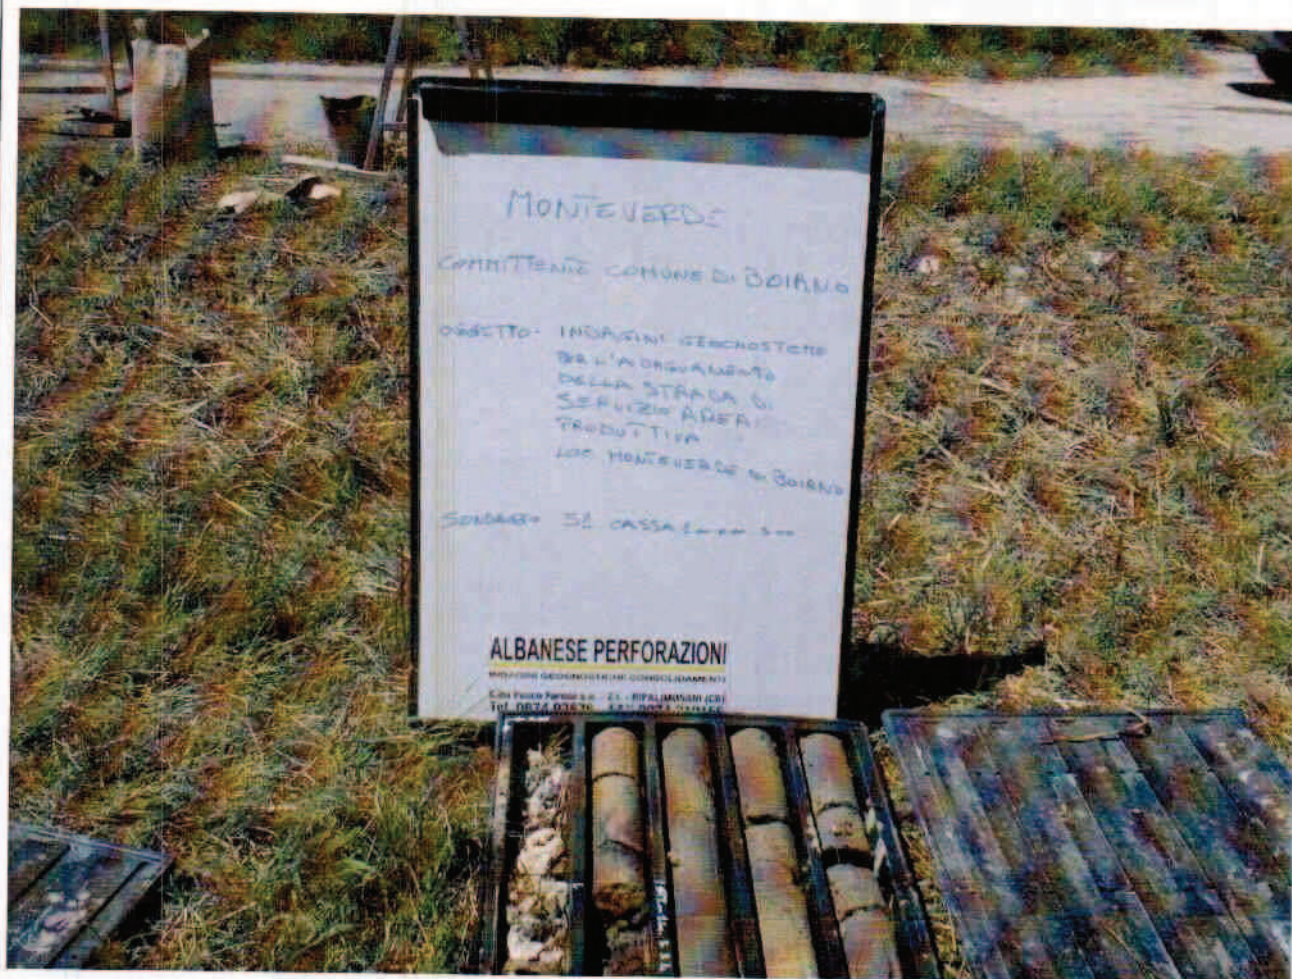 MONTEVERDE
COMMITTENTE COMUNE DI BOIANO
OGGETTO- INDAGINI GEOGNOSTICHE
PER L'ADEGUAMENTO
DELLA STRADA DI
SERVIZIO AREA
PRODUTTIVA
LOC. MONTEVERDE DI BOIANO
SONDAGGIO S1 CASSA 1
ALBANESE PERFORAZIONI
INDAGINI GEOGNOSTICHE CONSOLIDAMENTI
RIPALIMOSANI (CB)
Tel. 0874